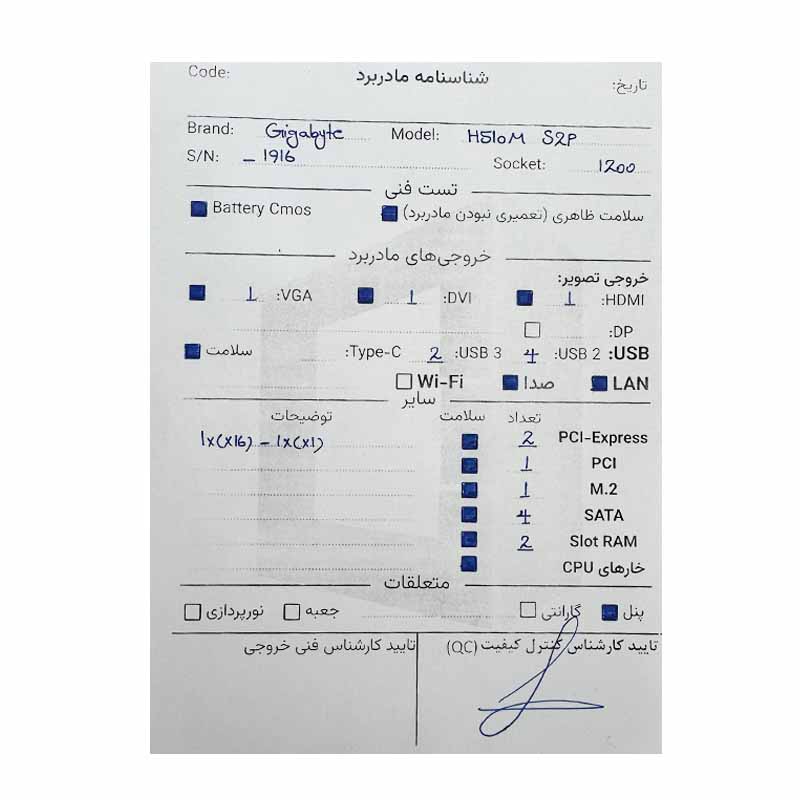 شناسنامه مادربرد
Code: تاریخ:
Brand: Gigabyte Model: H510M S2P
S/N: _ 1916 Socket: 1200
تست فنی
سلامت ظاهری (تعمیری نبودن مادربرد) Battery Cmos
خروجی‌های مادربرد
خروجی تصویر:
HDMI: 1 DVI: 1 VGA: 1
DP:
USB: USB 2: 4 USB 3: 2 Type-C: سلامت
LAN صدا Wi-Fi
سایر
تعداد سلامت توضیحات
PCI-Express 2 1x(x16) - 1x(x1)
PCI 1
M.2 1
SATA 4
Slot RAM 2
خارهای CPU
متعلقات
پنل گارانتی جعبه نورپردازی
تایید کارشناس کنترل کیفیت (QC) تایید کارشناس فنی خروجی